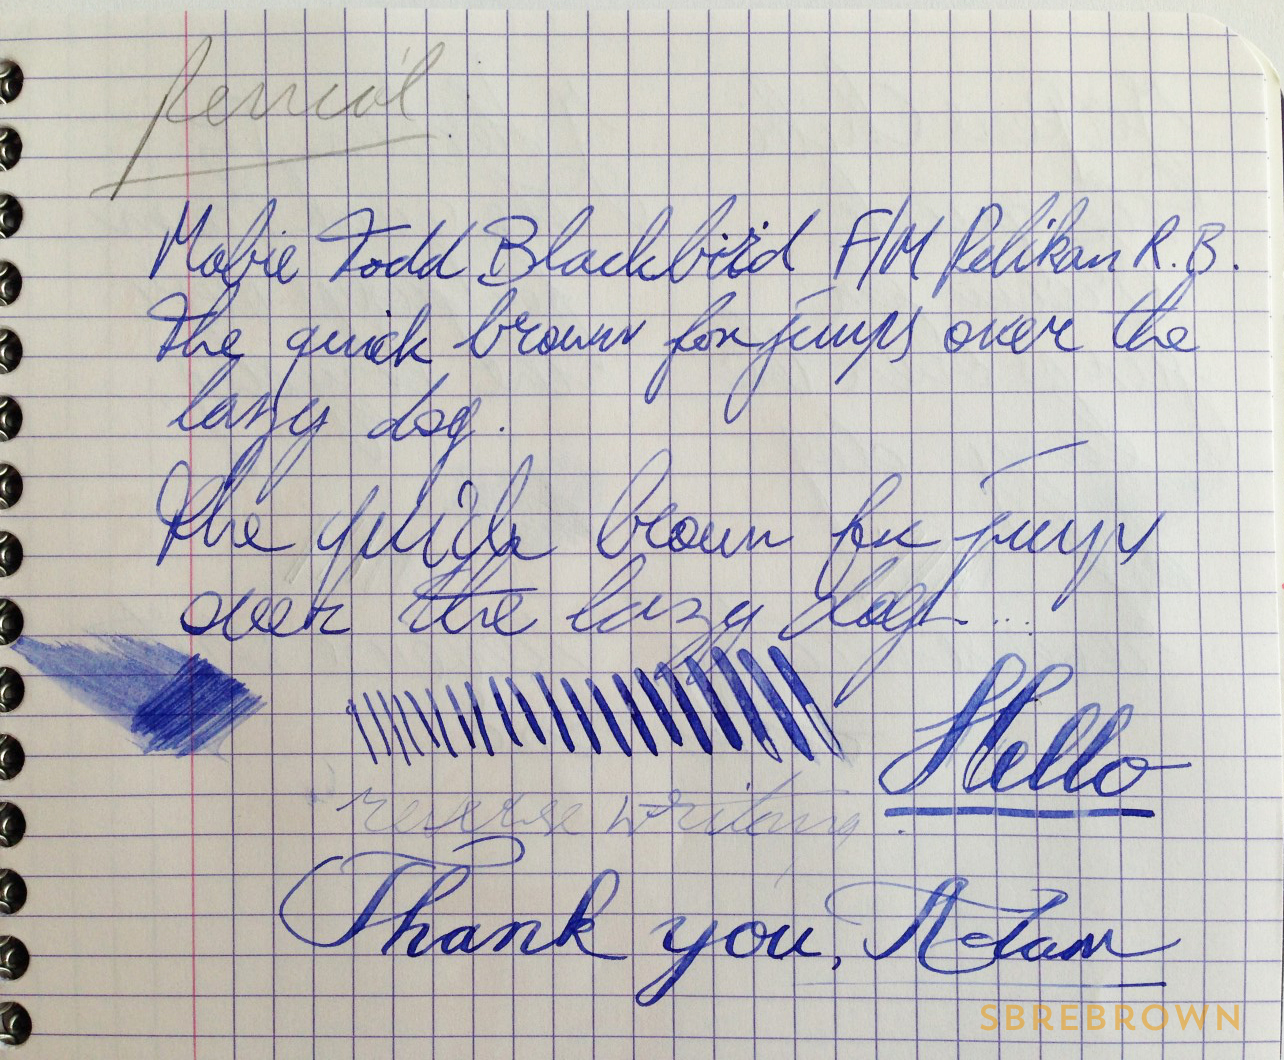 Pencil.
Mabie Todd Blackbird F/M Pelikan R.B.
The quick brown fox jumps over the
lazy dog.
The quick brown fox jumps
over the lazy dog...
Hello
reverse writing.
Thank you,
SBREBROWN